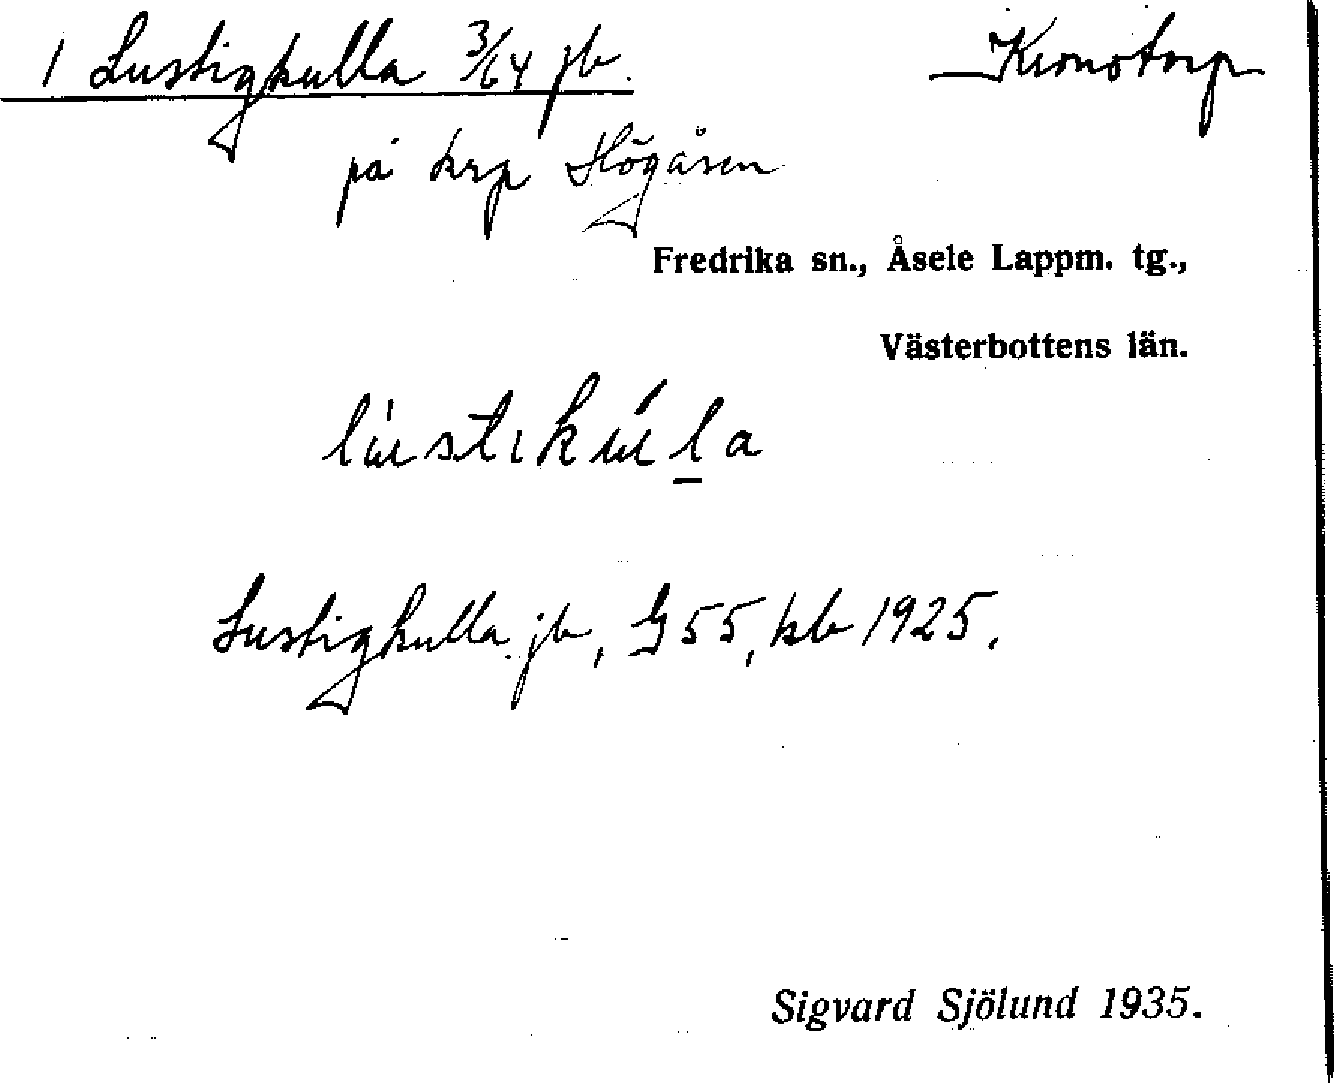 1 Lustigkulla 3/64 jb. Kronotorp
på krp Högåsen
Fredrika sn., Åsele Lappm. tg.,
Västerbottens län.
lùstıkúḻa
Lustigkulla jb, G 55, kb 1925.
Sigvard Sjölund 1935.